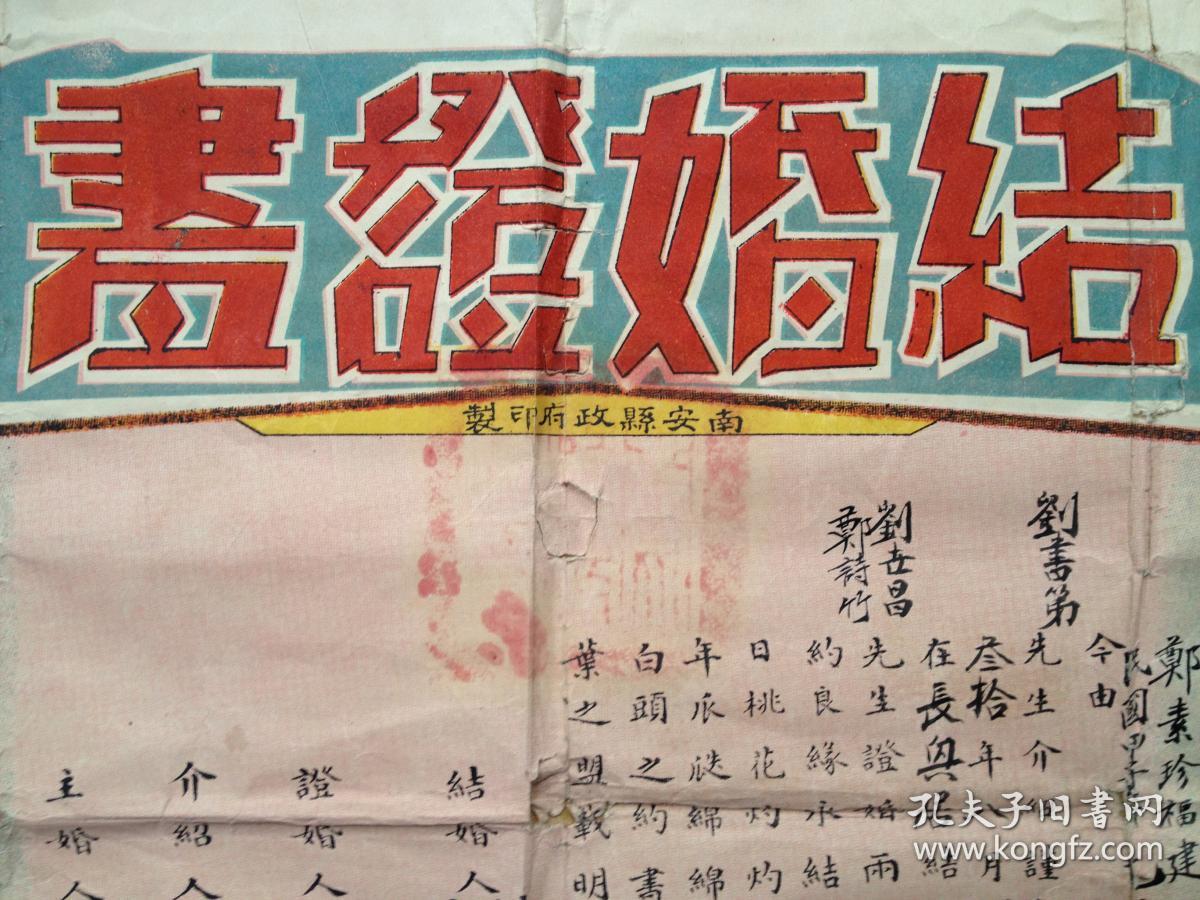 結婚證書
南安縣政府印製
鄭素珍福建
民國甲子年
今由
劉書第
先生介紹謹
叁拾年八月
在長結
劉世昌
鄭詩竹
先生證婚兩
約良緣永結
日桃花灼灼
年瓜瓞綿綿
白頭之約書
葉之盟載明
結婚人
證婚人
介紹人
主婚人
孔夫子旧书网
www.kongfz.com